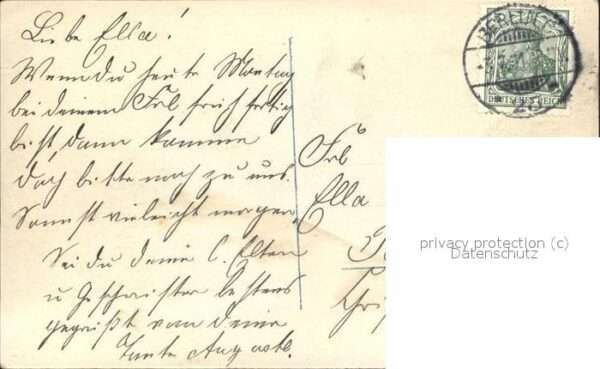 Liebe Ella!
Wenn du heute Montag
bei deinem Frl früh fertig
bist, dann komme
doch bitte noch zu uns.
Sonnst vieleicht morgen.
Sei du deine l. Eltern
u Geschwister bestens
gegrüßt von deine
Tante
Frl
Ella
BERLIN
DEUTSCHES REICH
privacy protection (c)
Datenschutz